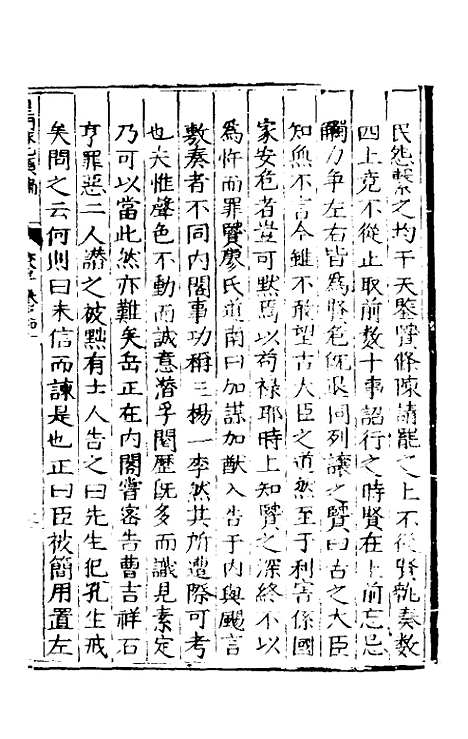 民怨繫之均干天鑒賢條陳請罷之上不從賢執奏數
四上竟不從止取前數十事詔行之時賢在上前忘忌
觸力爭左右皆為賢危既退同列讓之賢曰古之大臣
知無不言今雖不敢望古大臣之道然至于利害係國
家安危者豈可默焉以苟祿耶時上知賢之深終不以
為忤而罪賢廖氏道南曰加謀加猷入告于內與颺言
敷奏者不同內閣事功稱三楊一李然其所遭際可考
也夫惟聲色不動而誠意潛孚閱歷既多而識見素定
乃可以當此然亦難矣岳正在內閣嘗密告曹吉祥石
亨罪惡二人譖之被黜有士人告之曰先生犯孔生戒
矣問之云何則曰未信而諫是也正曰臣被簡用置左